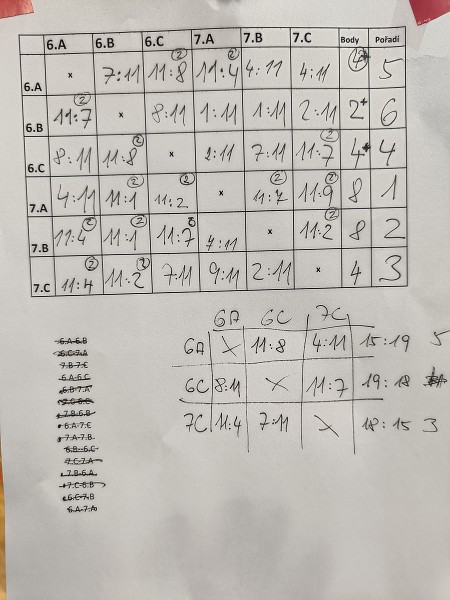 6.A 6.B 6.C 7.A 7.B 7.C Body Pořadí
6.A x 7:11 11:8 ② 11:4 ② 4:11 4:11 4 5
6.B 11:7 ② x 8:11 1:11 1:11 2:11 2 6
6.C 8:11 11:8 ② x 2:11 7:11 11:7 ② 4 4
7.A 4:11 11:1 ② 11:2 ② x 11:7 ② 11:9 ② 8 1
7.B 11:4 ② 11:1 ② 11:7 ② 7:11 x 11:2 ② 8 2
7.C 11:4 ② 11:2 ② 7:11 9:11 2:11 x 4 3
6A 6C 7C
6A x 11:8 4:11 15:19 5
6C 8:11 x 11:7 19:18
7C 11:4 7:11 x 18:15 3
6.A-6.B
6.C-7.A
7.B-7.C
6.A-6.C
6.B-7.A
7.B-6.B
6.A-7.C
7.A-7.B
6.B-6.C
7.C-7.A
7.B-6.A
7.C-6.B
6.C-7.B
6.A-7.A